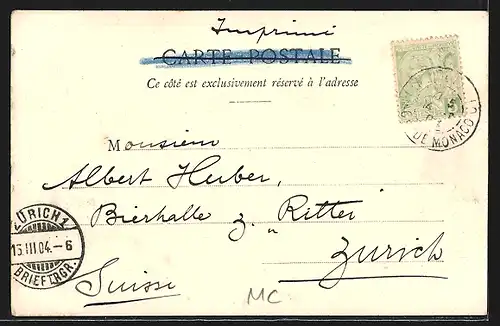 Imprimé
CARTE POSTALE
Ce côté est exclusivement réservé à l'adresse
5
DE MONACO
Monsieur
Albert Huber,
Bierhalle z. Ritter
Zurich
ZÜRICH 1
13.III.04.–6
BRIEFTRGR.
Suisse
MC